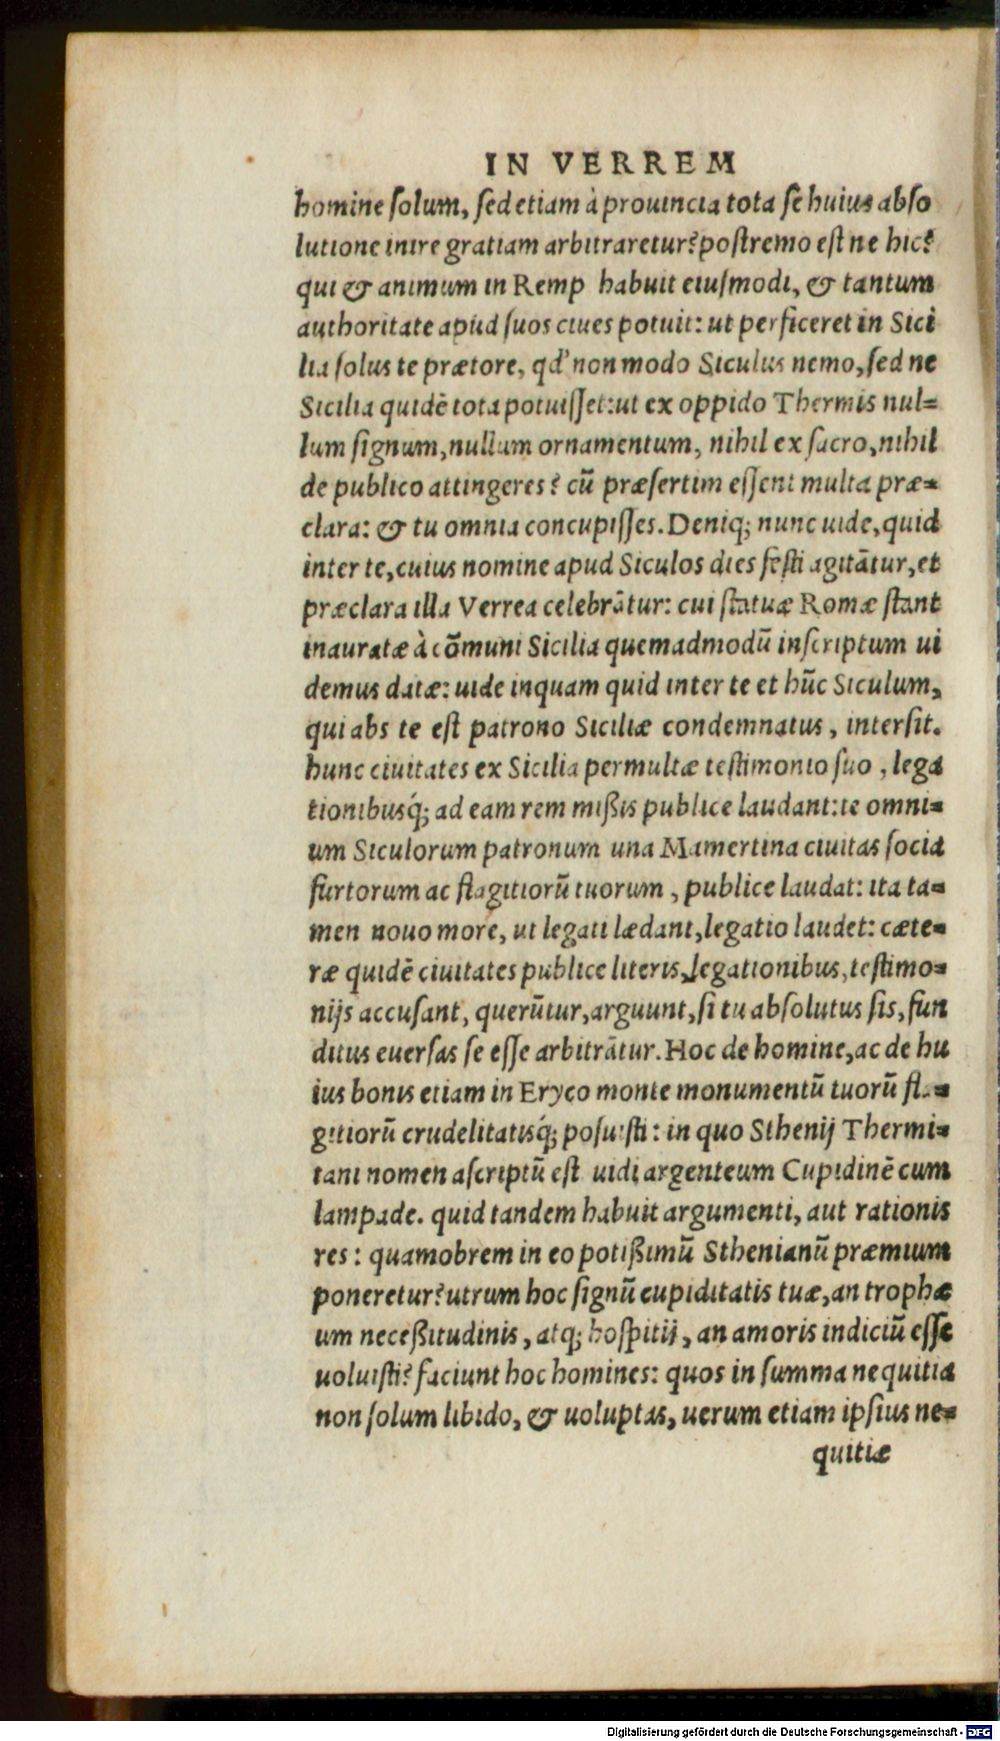 IN VERREM
homine solum, sed etiam à prouincia tota se huius abso
lutione inire gratiam arbitraretur? postremo est ne hic?
qui & animum in Remp habuit eiusmodi, & tantum
authoritate apud suos ciues potuit: ut perficeret in Sici
lia solus te prætore, qd' non modo Siculus nemo, sed ne
Sicilia quidē tota potuisset: ut ex oppido Thermis nul=
lum signum, nullum ornamentum, nihil ex sacro, nihil
de publico attingeres? cū præsertim essent multa præ=
clara: & tu omnia concupisses. Deniq; nunc uide, quid
inter te, cuius nomine apud Siculos dies festi agitātur, et
præclara illa Verrea celebrātur: cui statuæ Romæ stant
inauratæ à cōmuni Sicilia quemadmodū inscriptum ui
demus datæ: uide inquam quid inter te et hūc Siculum,
qui abs te est patrono Siciliæ condemnatus, intersit.
hunc ciuitates ex Sicilia permultæ testimonio suo, lega
tionibusq́; ad eam rem mißis publice laudant: te omni=
um Siculorum patronum una Mamertina ciuitas socia
furtorum ac flagitiorū tuorum, publice laudat: ita ta=
men nouo more, ut legati lædant, legatio laudet: cæte=
ræ quidē ciuitates publice literis, legationibus, testimo=
nijs accusant, querūtur, arguunt, si tu absolutus sis, fun
ditus euersas se esse arbitrātur. Hoc de homine, ac de hu
ius bonis etiam in Eryco monte monumentū tuorū fla=
gitiorū crudelitatisq́; posuisti: in quo Sthenij Thermi=
tani nomen ascriptū est uidi argenteum Cupidinē cum
lampade. quid tandem habuit argumenti, aut rationis
res: quamobrem in eo potißimū Sthenianū præmium
poneretur? utrum hoc signū cupiditatis tuæ, an trophæ
um neceßitudinis, atq; hospitij, an amoris indiciū esse
uoluisti? faciunt hoc homines: quos in summa nequitia
non solum libido, & uoluptas, uerum etiam ipsius ne=
quitiæ
Digitalisierung gefördert durch die Deutsche Forschungsgemeinschaft - DFG